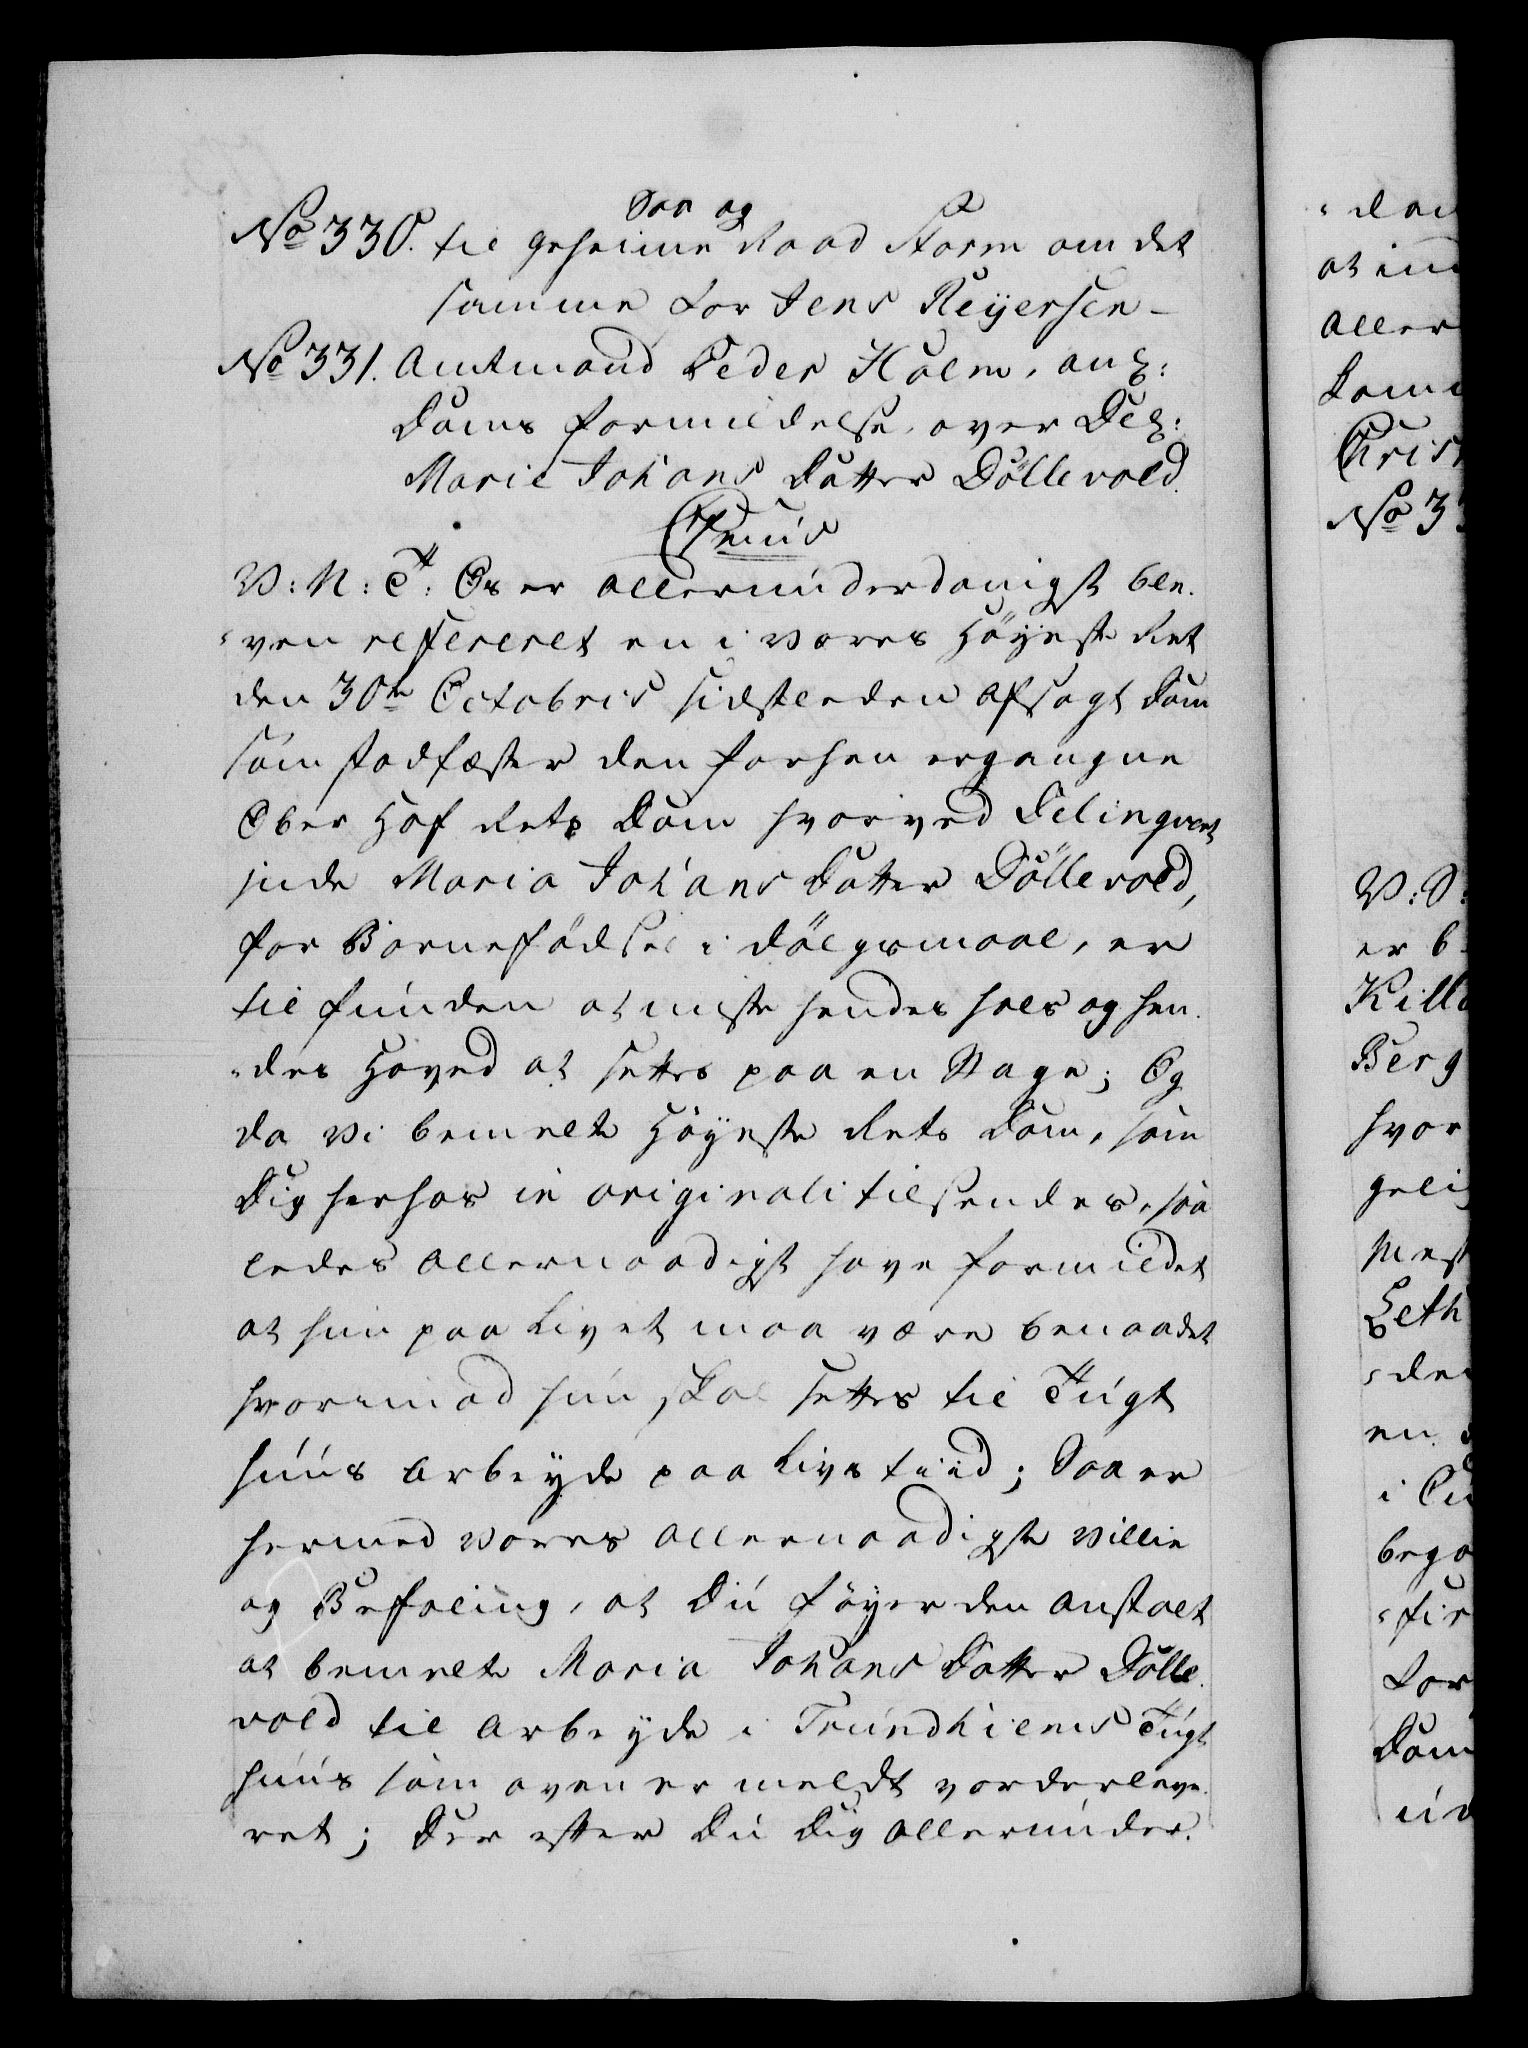 Saa og
No 330. til geheime Raad Storm om det
samme for Jens Reyersen –
No 331. Amtmand Peder Holm, ang:
Doms formildelse, over Del:
Marie Johans Datter Döllevold.
V: N: T: Os er allerunderdanigst ble-
-ven refereret en i vores Höyeste Ret
den 30te Octobris sidstleeden afsagt Dom
som stadfæster den forhen ergangne
Ober Hof Rets Dom hvorved Delinqvent
inde Maria Johans Datter Döllevold,
for Barnefödsel i Dölgsmaal, er
tilfunden at miste hendes Hals og hen-
-des Hoved at settes paa en Stage; Og
da Vi bemelte Höyeste Rets Dom, som
Dig herhos in originali tilsendes, saa
ledes allernaadigst have formildet
at hun paa Livet maa være benaadet
hvorimod hun skal settes til Tugt
huus Arbeyde paa Livs tiid; Saa er
hermed vores allernaadigste Villie
og Befaling, at Du föyer den Anstalt
at bemelte Maria Johans Datter Dölle-
vold til Arbeyde i Trundhiems Tugt
huus som oven er meldt vorder leve-
ret; Der efter Du Dig allerunder-
-den
at ind
aller
Chris
No 33
V: S:
er b
Killo
Berg
hvor
gelig
Mest
Leth
-de
en
i Cu
bega
for
Dom